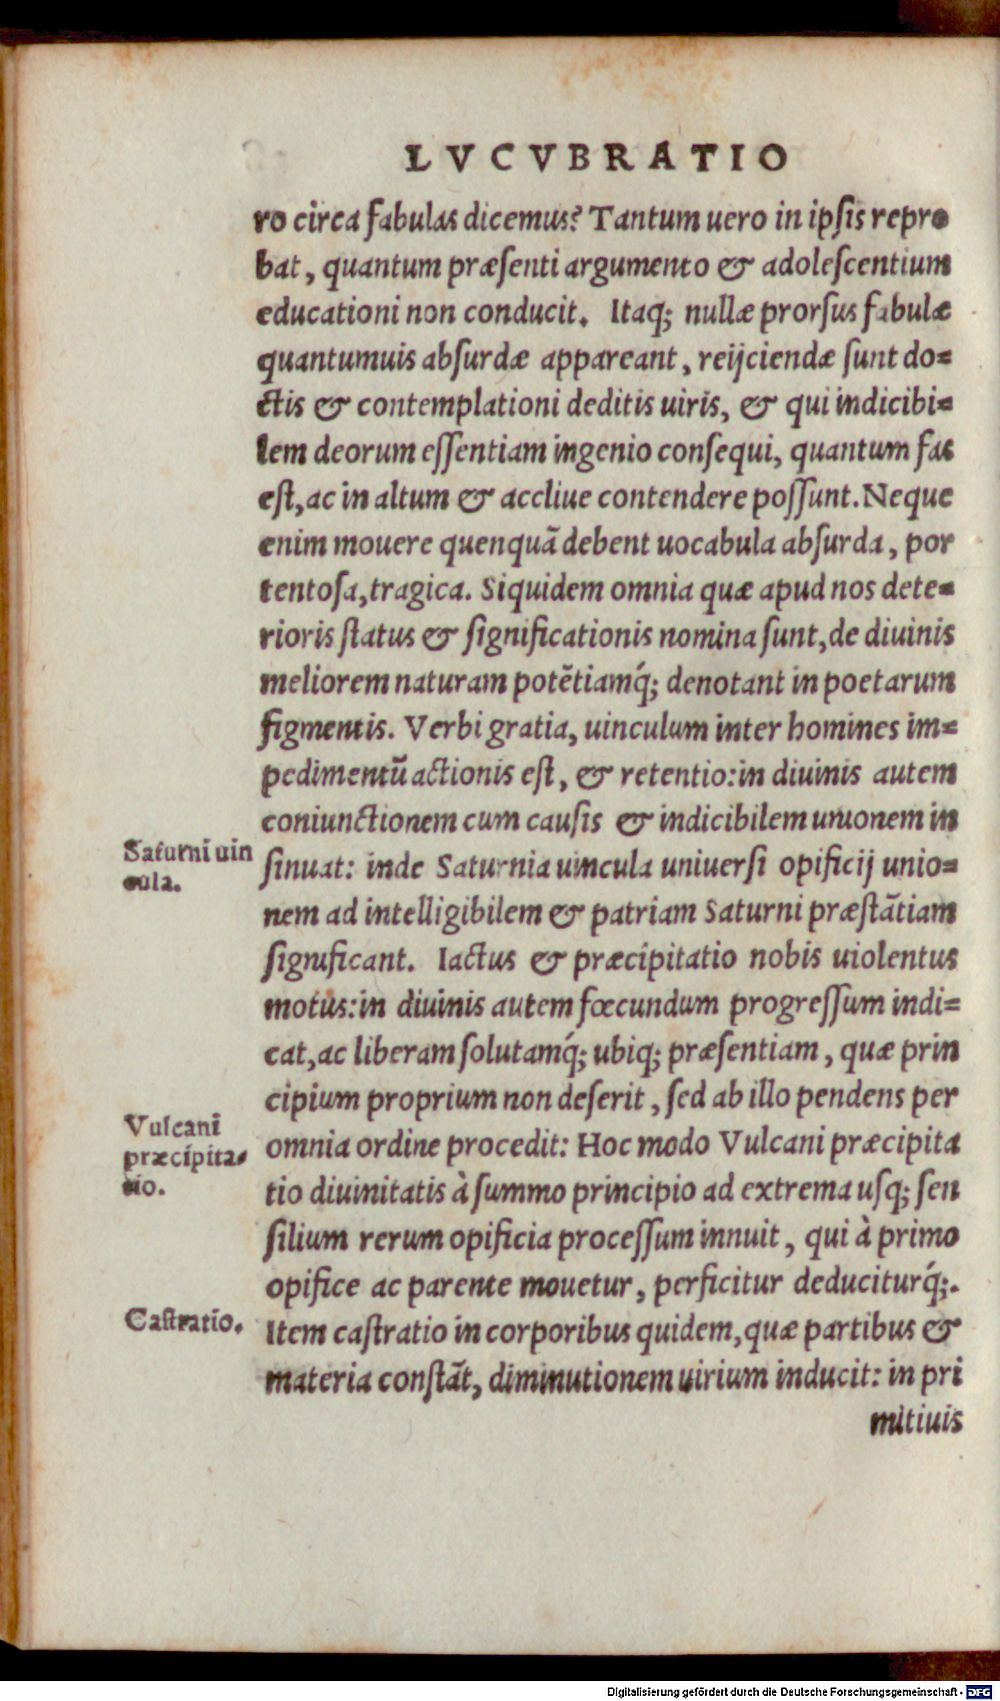 LVCVBRATIO
ro circa fabulas dicemus? Tantum uero in ipsis repro
bat, quantum præsenti argumento & adolescentium
educationi non conducit. Itaq; nullæ prorsus fabulæ
quantumuis absurdæ appareant, reijciendæ sunt do=
ctis & contemplationi deditis uiris, & qui indicibi=
lem deorum essentiam ingenio consequi, quantum fas
est, ac in altum & accliue contendere possunt. Neque
enim mouere quenquã debent uocabula absurda, por
tentosa, tragica. Siquidem omnia quæ apud nos dete=
rioris status & significationis nomina sunt, de diuinis
meliorem naturam potẽtiamq́; denotant in poetarum
figmentis. Verbi gratia, uinculum inter homines im=
pedimentũ actionis est, & retentio: in diuinis autem
coniunctionem cum causis & indicibilem unionem in
Saturni uin
cula.
sinuat: inde Saturnia uincula uniuersi opificij unio=
nem ad intelligibilem & patriam Saturni præstãtiam
significant. Iactus & præcipitatio nobis uiolentus
motus: in diuinis autem fœcundum progressum indi=
cat, ac liberam solutamq́; ubiq; præsentiam, quæ prin
cipium proprium non deserit, sed ab illo pendens per
Vulcani
præcipita=
tio.
omnia ordine procedit: Hoc modo Vulcani præcipita
tio diuinitatis à summo principio ad extrema usq; sen
silium rerum opificia processum innuit, qui à primo
opifice ac parente mouetur, perficitur deduciturq́;.
Castratio.
Item castratio in corporibus quidem, quæ partibus &
materia constãt, diminutionem uirium inducit: in pri
mitiuis
Digitalisierung gefördert durch die Deutsche Forschungsgemeinschaft - DFG